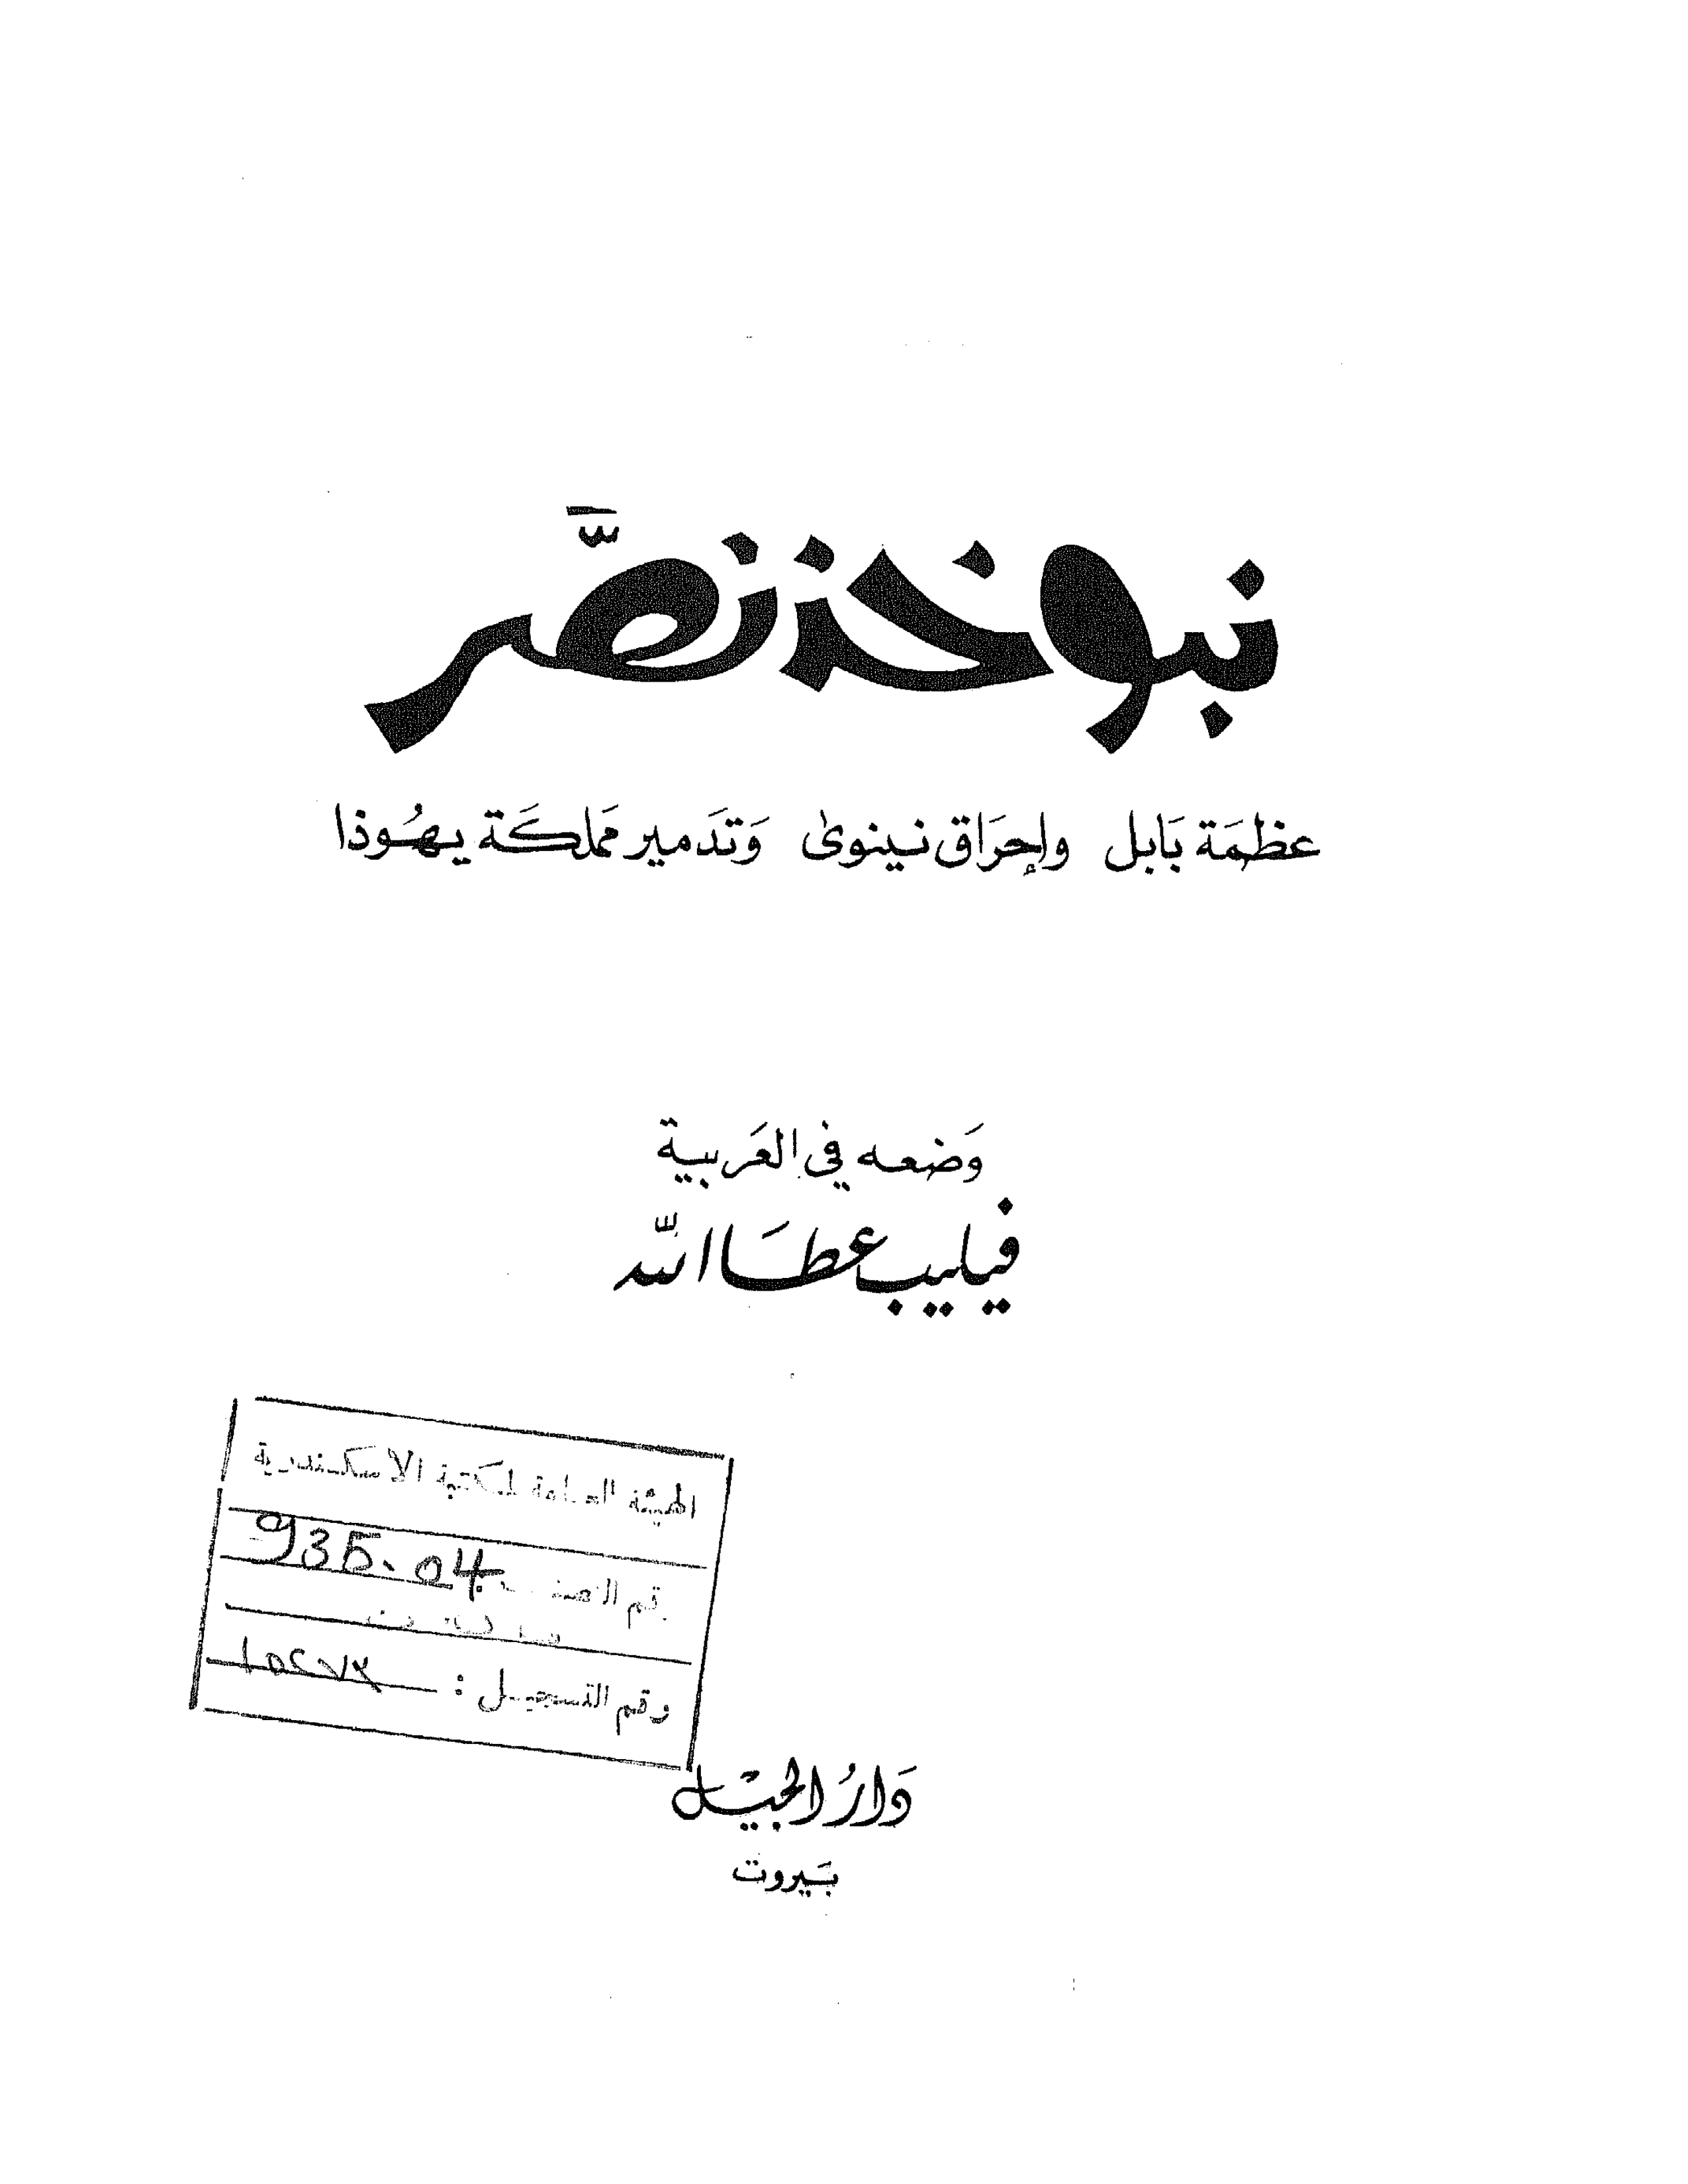 نبوخذنصَّر
عظمَة بَابل وإحرَاق نينوىٰ وَتدَمير مَملكَة يهُوذا
وَضعه في العَربية
فيليب عطَا اللّه
الهيئة العامة لمكتبة الاسكندرية
رقم التصنيف 935.04
رقم التسجيل : ١٥٢٧٣
دَارُ الجيْل
بَيروت